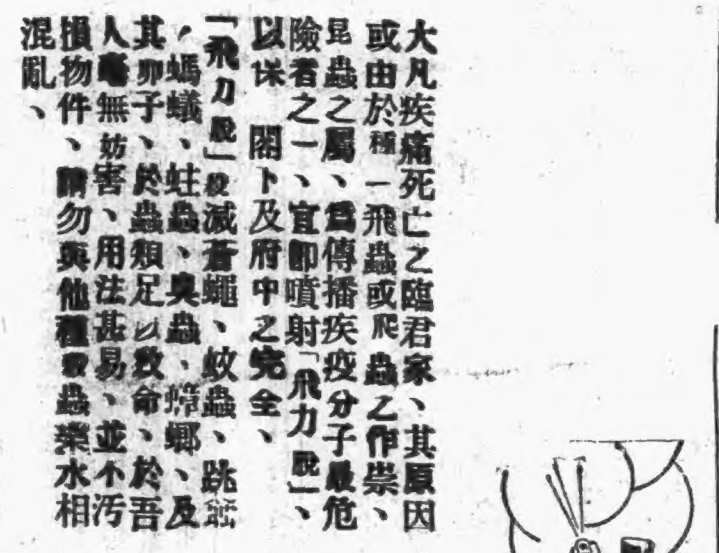 大凡疾痛死亡之臨君家、其原因
或由於種一飛蟲或爬蟲之作祟、
昆蟲之屬、爲傳播疾疫分子最危
險者之一、宜卽噴射「飛力脫」、
以保 閤卜及府中之完全、
「飛力脫」殺滅蒼蠅、蚊蟲、跳
、螞蟻、蛀蟲、臭蟲、蟑螂、及
其卵子、於蟲類足以致命、於吾
人毫無妨害、用法甚易、並不汚
損物件、請勿與他種殺蟲藥水相
混亂、